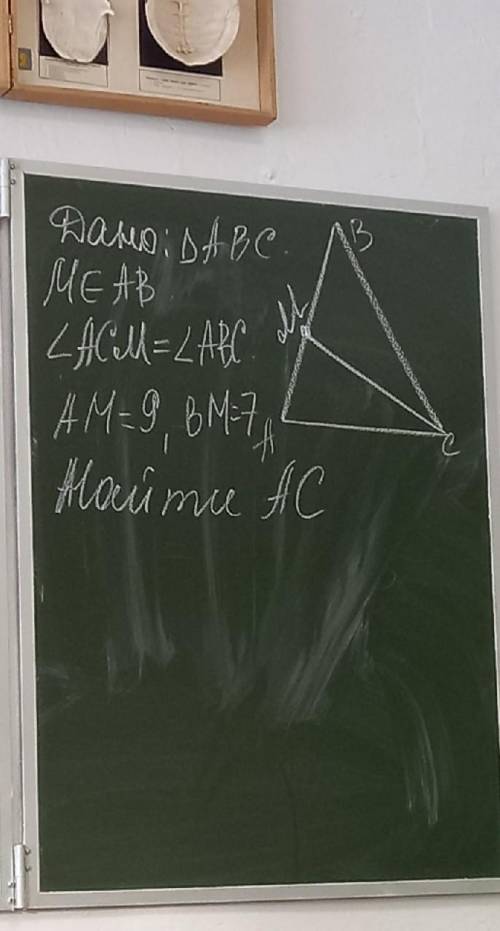 Дано: ΔABC.
M∈AB
∠ACM=∠ABC.
AM=9, BM=7
Найти AC
B
M
A
C